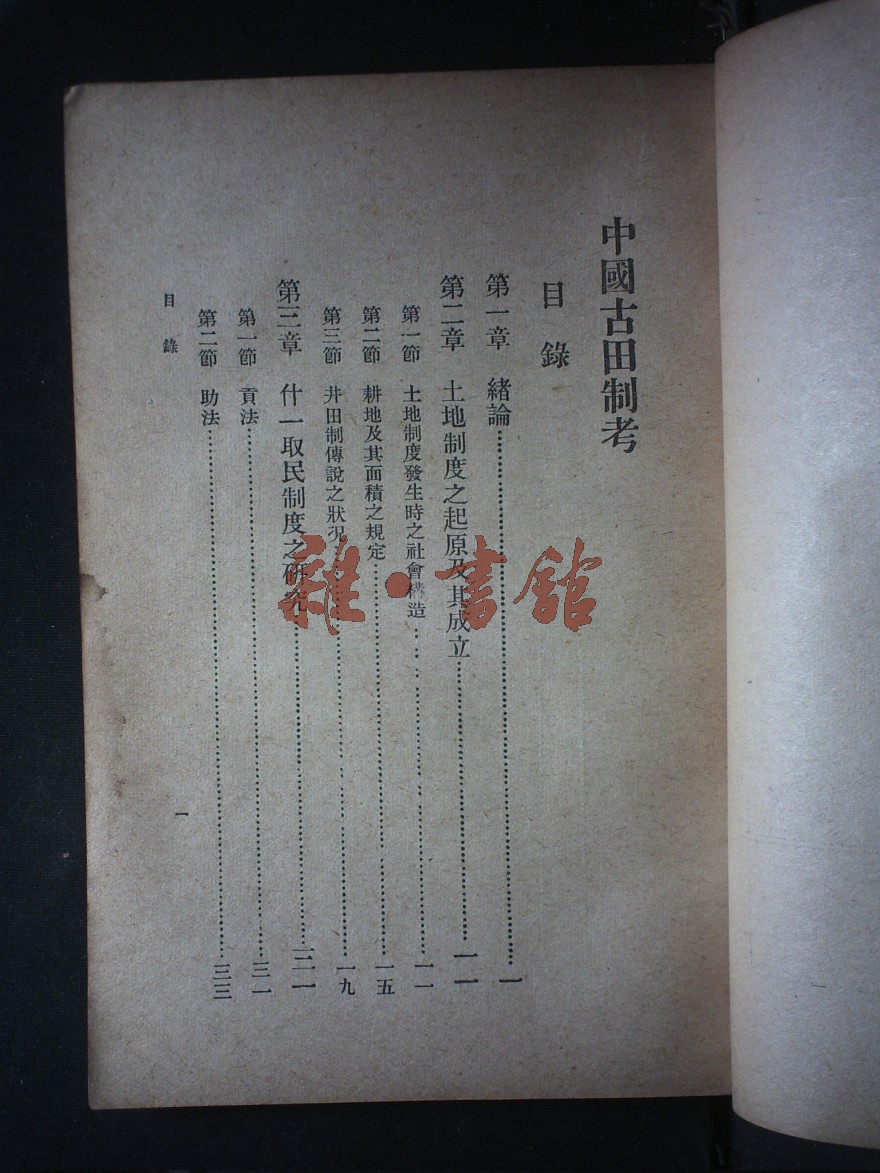 中國古田制考
目錄
第一章 緒論……一
第二章 土地制度之起原及其成立……一一
第一節 土地制度發生時之社會構造……一一
第二節 耕地及其面積之規定……一五
第三節 井田制傳說之狀況……一九
第三章 什一取民制度之研究……三一
第一節 貢法……三一
第二節 助法……三三
目錄
一
雜·書館